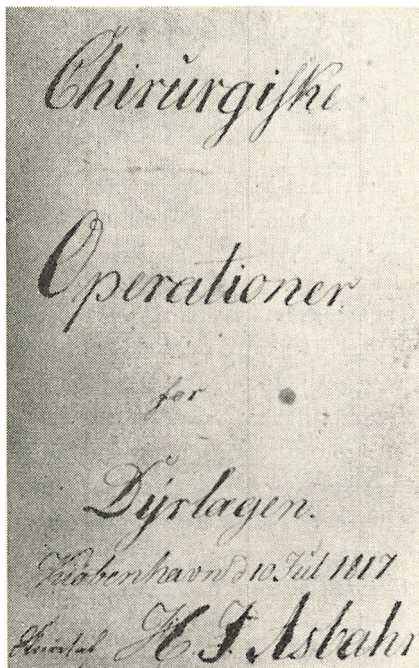 Chirurgiske
Operationer
for
Dÿrlagen.
Kiøbenhavn d 10 Jul 1817
H. J. Asbahr